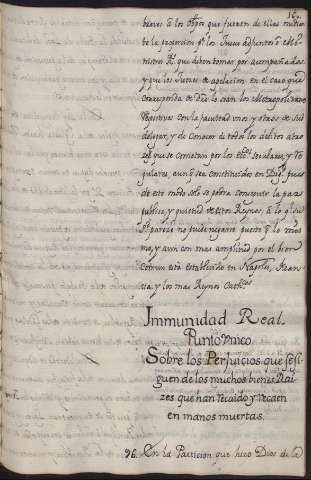 169.
breves à los Obispos que fuesen de ellas mediante
la pocession qe los Jueces adjuntos è eclesiasticos
Rl. que deben tomar por acompañados
y que los Jueces de apelacion en el caso que
corresponda de dro lo sean los Metropolitanos
respectivos con la facultad unos y otros de subdelegar,
y de conocer de todos los delitos atroces
que se cometan por los eccos. seculares, y Regulares,
aunqe sea constituidos en Dignd. pues
de este modo solo se podra conservar la paz
publica, y quietud de estos Reynos, à lo qe
parece no puede negarse puesto qe lo mismo,
y aun con mas amplitud por el bien
comun està establecido en Napoles, Francia,
y los mas Reynos Cathcos.
Immunidad Real.
Punto Vnico
Sobre los Perjuicios que se si-
guen de los muchos bienes Rai-
zes que han recaido y recaen
en manos muertas.
96. En la Particion que hizo Dios de la